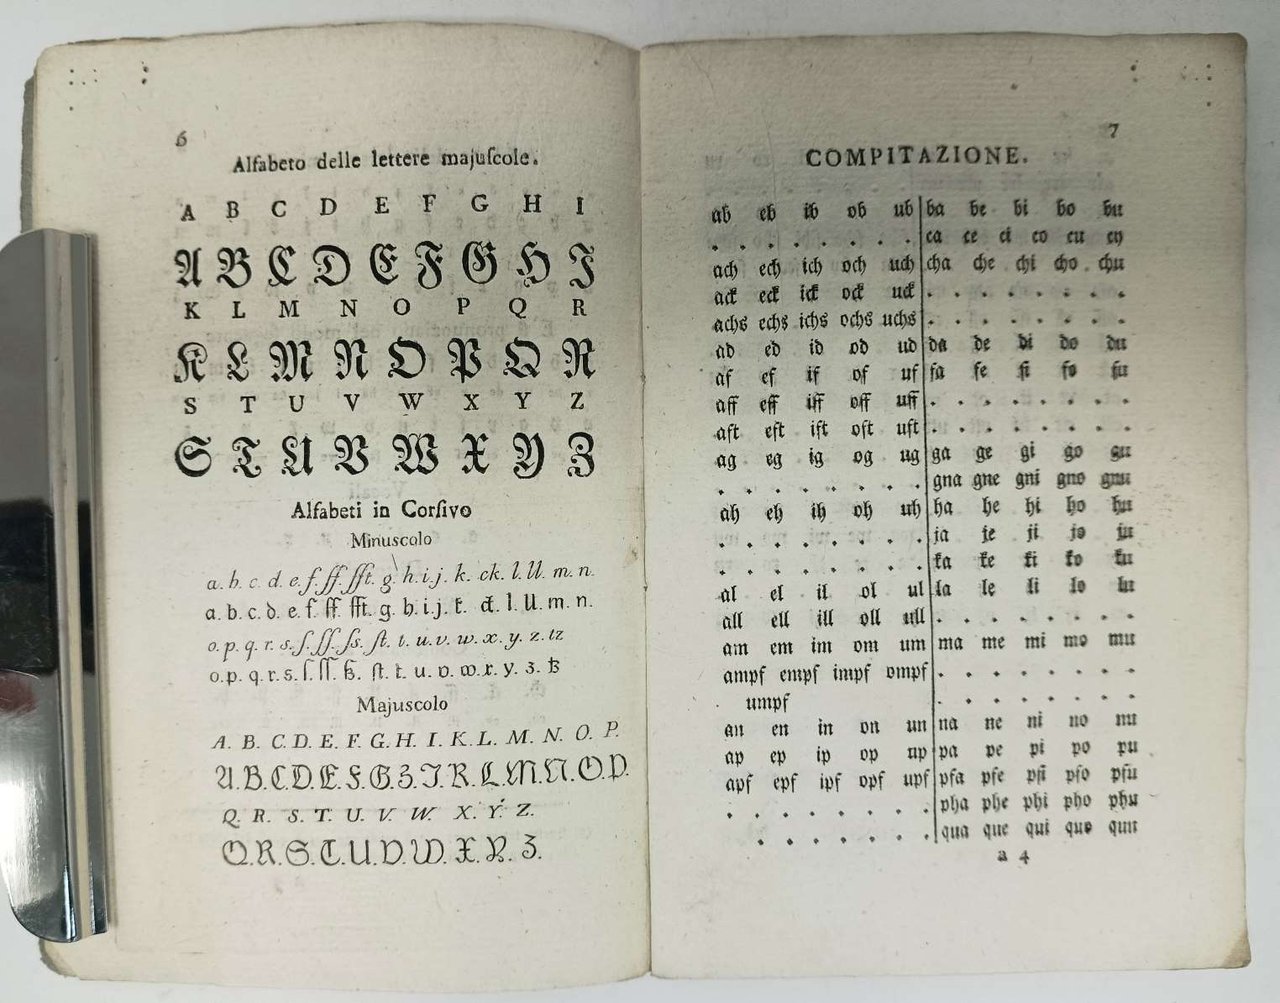 6
Alfabeto delle lettere majuſcole.
A B C D E F G H I
A B C D E F G H I
K L M N O P Q R
K L M N O P Q R
S T U V W X Y Z
S T U V W X Y Z
Alfabeti in Corſivo
Minuscolo
a. b. c. d. e. f. ff. fft. g. h. i. j. k. ck. l. ll. m. n.
a. b. c. d. e. f. ff. fft. g. h. i. j. k. ck. l. ll. m. n.
o. p. q. r. s. ſ. ſſ. ſs. ſt. t. u. v. w. x. y. z. tz
o. p. q. r. s. ſ. ſſ. ß. ſt. t. u. v. w. x. y. z. tz
Majuscolo
A. B. C. D. E. F. G. H. I. K. L. M. N. O. P.
A. B. C. D. E. F. G. H. I. K. L. M. N. O. P.
Q. R. S. T. U. V. W. X. Y. Z.
Q. R. S. T. U. V. W. X. Y. Z.
7
COMPITAZIONE.
ab eb ib ob ub ba be bi bo bu
. . . . . . . . ca ce ci co cu cy
ach ech ich och uch cha che chi cho chu
ack eck ick ock uck . . . . . . . .
achs echs ichs ochs uchs . . . . . . . .
ad ed id od ud da de di do du
af ef if of uf fa fe fi fo fu
aff eff iff off uff . . . . . . . .
aft eft ift oft uft . . . . . . . .
ag eg ig og ug ga ge gi go gu
. . . . . . . . gna gne gni gno gnu
ah eh ih oh uh ha he hi ho hu
. . . . . . . . ja je ji jo ju
. . . . . . . . ka ke ki ko ku
al el il ol ul la le li lo lu
all ell ill oll ull . . . . . . . .
am em im om um ma me mi mo mu
ampf empf impf ompf . . . . . . . .
umpf . . . . . . . .
an en in on un na ne ni no nu
ap ep ip op up pa pe pi po pu
apf epf ipf opf upf pfa pfe pfi pfo pfu
. . . . . . . . pha phe phi pho phu
. . . . . . . qua que qui quo quu
a 4